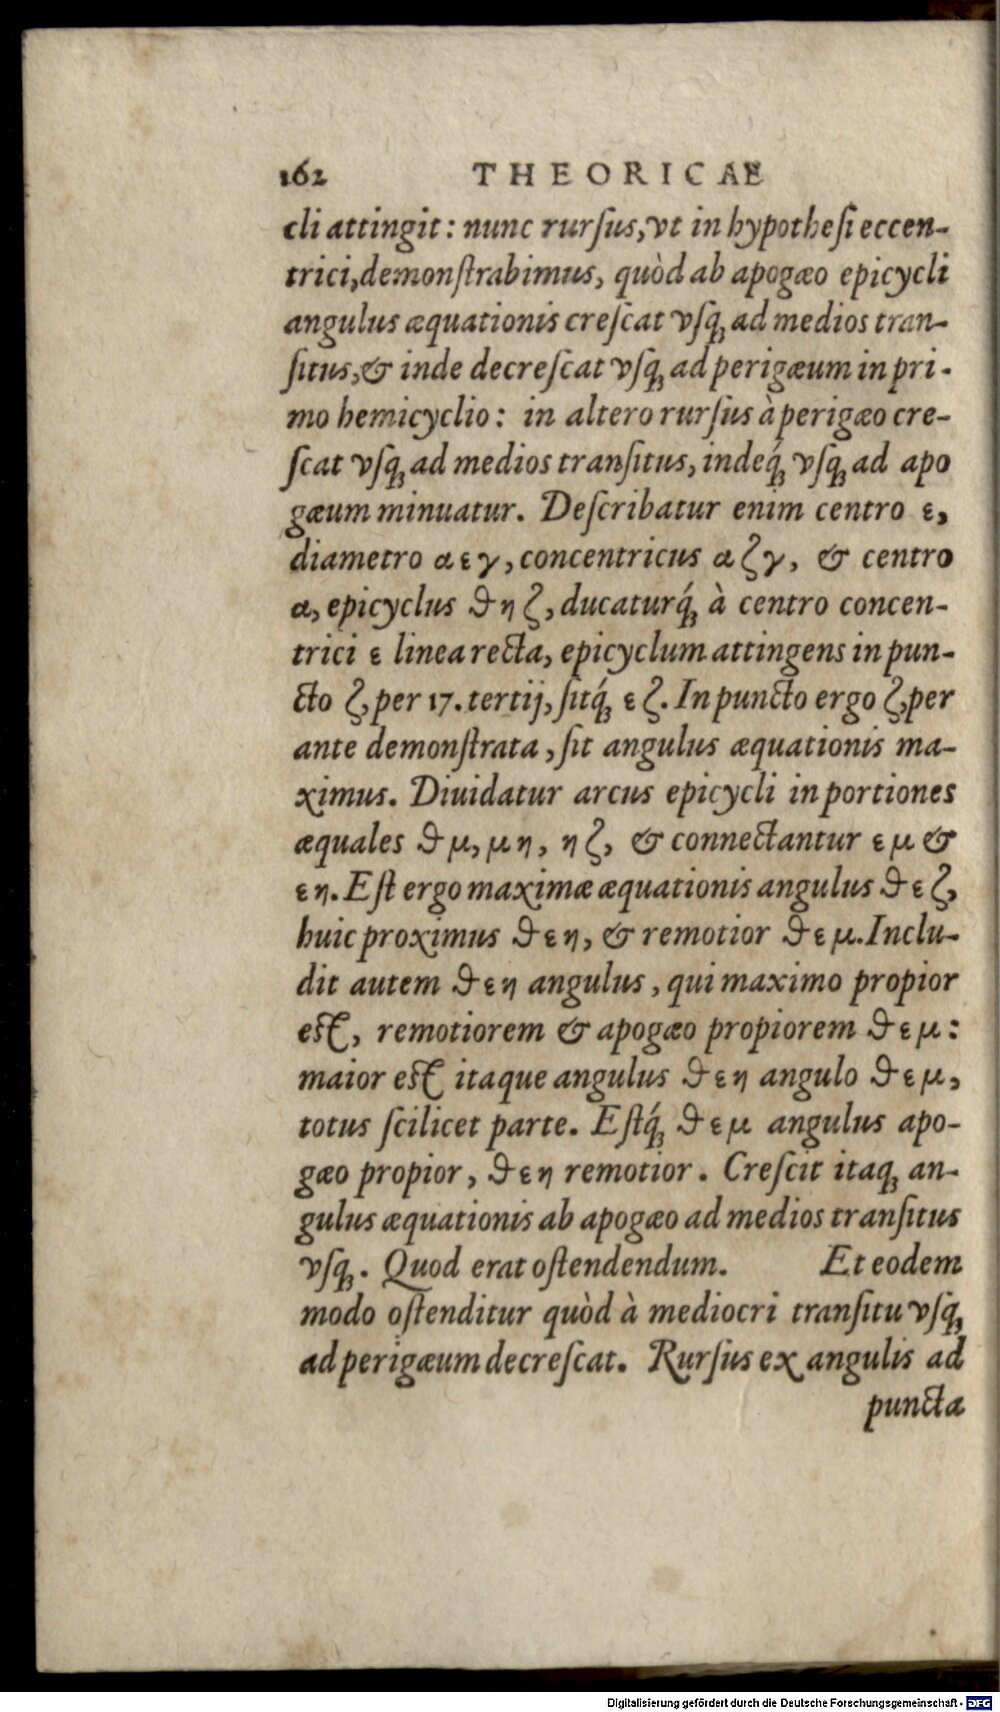 162 THEORICAE
cli attingit: nunc rurſus, vt in hypotheſi eccen-
trici, demonſtrabimus, quòd ab apogæo epicycli
angulus æquationis creſcat vſq́; ad medios tran-
ſitus, & inde decreſcat vſq; ad perigæum in pri-
mo hemicyclio: in altero rurſus à perigæo cre-
ſcat vſq; ad medios tranſitus, indeq́; vſq; ad apo
gæum minuatur. Deſcribatur enim centro ε,
diametro α ε γ, concentricus α ζ γ, & centro
α, epicyclus ϑ η ζ, ducaturq́; à centro concen-
trici ε linea recta, epicyclum attingens in pun-
cto ζ, per 17. tertij, ſitq́; ε ζ. In puncto ergo ζ, per
ante demonſtrata, ſit angulus æquationis ma-
ximus. Diuidatur arcus epicycli in portiones
æquales ϑ μ, μ η, η ζ, & connectantur ε μ &
ε η. Eſt ergo maximæ æquationis angulus ϑ ε ζ,
huic proximus ϑ ε η, & remotior ϑ ε μ. Inclu-
dit autem ϑ ε η angulus, qui maximo propior
eſt, remotiorem & apogæo propiorem ϑ ε μ:
maior eſt itaque angulus ϑ ε η angulo ϑ ε μ,
totus ſcilicet parte. Eſtq́; ϑ ε μ angulus apo-
gæo propior, ϑ ε η remotior. Creſcit itaq; an-
gulus æquationis ab apogæo ad medios tranſitus
vſq;. Quod erat oſtendendum. Et eodem
modo oſtenditur quòd à mediocri tranſitu vſq;
ad perigæum decreſcat. Rurſus ex angulis ad
puncta
Digitalisierung gefördert durch die Deutsche Forschungsgemeinschaft - DFG